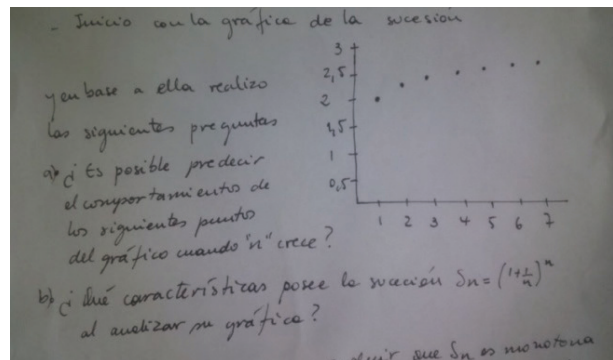 - Inicio con la gráfica de la sucesión
y en base a ella realizo
las siguientes preguntas
a) ¿Es posible predecir
el comportamientos de
los siguientes puntos
del gráfico cuando "n" crece?
3
2,5
2
1,5
1
0,5
1 2 3 4 5 6 7
b) ¿Qué características posee la suceción Sn = (1+1/n)^n
al analizar su gráfica?
que Sn es monotona